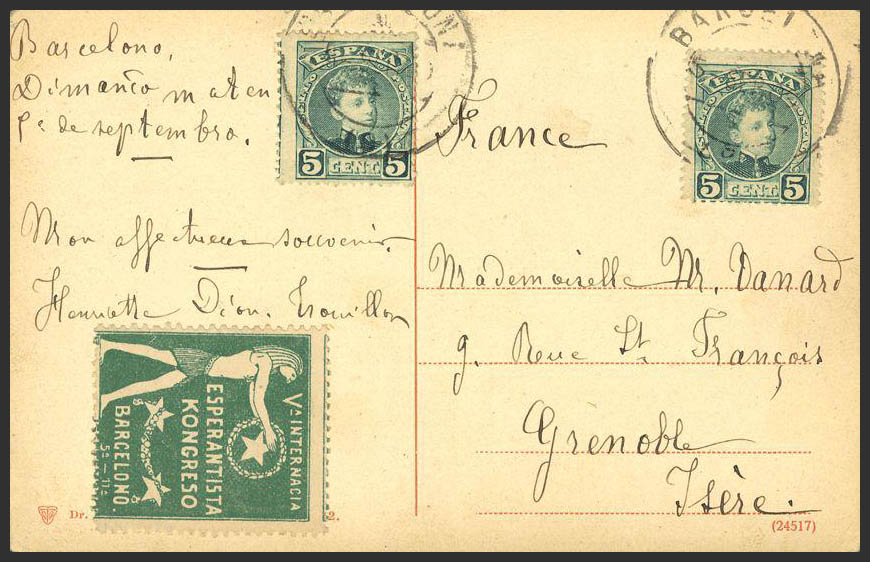 Barcelono,
Dimanĉo maten
5ª de septembro.
Mon affectueux souvenir.
Henriette Dion. Trouillon
V.ª INTERNACIA
ESPERANTISTA
KONGRESO
BARCELONO.
5ª – 11ª
Dr.
2.
ESPAÑA
5 CENT 5
BARCEL NA
ESPAÑA
5 CENT 5
France
Mademoiselle M. Vanard
9. Rue St. François
Grenoble
Isère.
(24517)